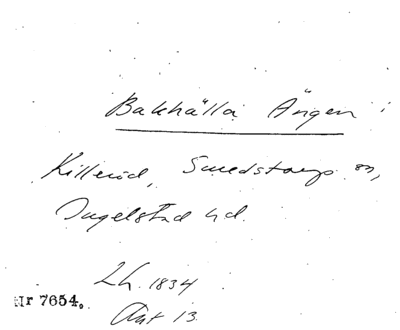 Bakhälla Ängen
Killeröd, Smedstorps sn,
Ingelstad hd.
Lh. 1834
Nr 7654.
Akt 13.